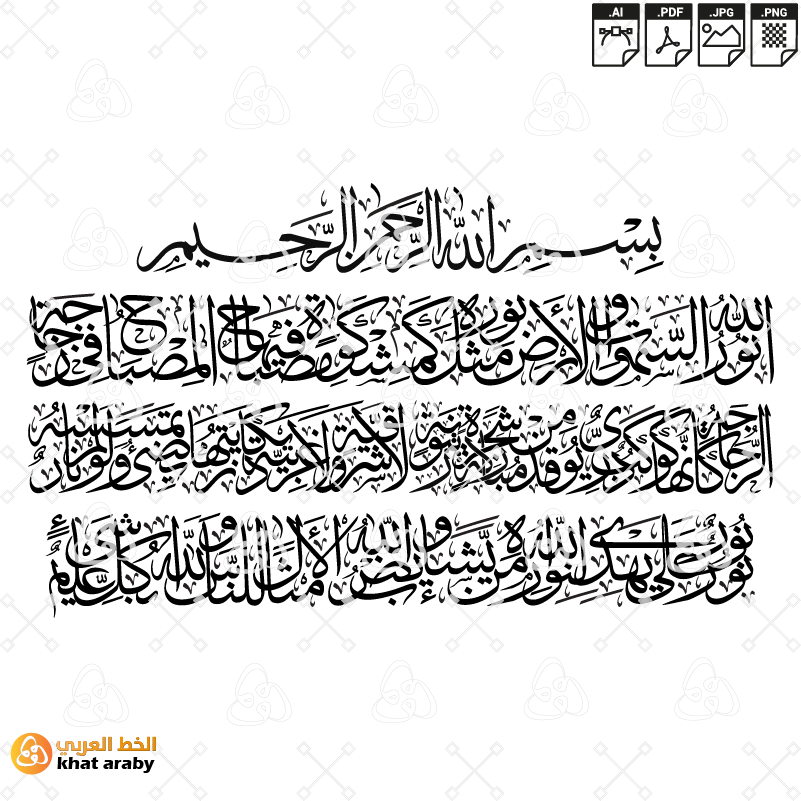 .AI .PDF .JPG .PNG
بِسْمِ اللهِ الرَّحْمٰنِ الرَّحِيمِ
اللهُ نُورُ السَّمٰوٰتِ وَالْأَرْضِ مَثَلُ نُورِهِ كَمِشْكٰوةٍ فِيهَا مِصْبَاحٌ الْمِصْبَاحُ فِي زُجَاجَةٍ
الزُّجَاجَةُ كَأَنَّهَا كَوْكَبٌ دُرِّيٌّ يُوقَدُ مِنْ شَجَرَةٍ مُبَارَكَةٍ زَيْتُونَةٍ لَا شَرْقِيَّةٍ وَلَا غَرْبِيَّةٍ يَكَادُ زَيْتُهَا يُضِيءُ وَلَوْ لَمْ تَمْسَسْهُ نَارٌ
نُورٌ عَلَىٰ نُورٍ يَهْدِي اللهُ لِنُورِهِ مَنْ يَشَاءُ وَيَضْرِبُ اللهُ الْأَمْثَالَ لِلنَّاسِ وَاللهُ بِكُلِّ شَيْءٍ عَلِيمٌ
الخط العربي
khat araby